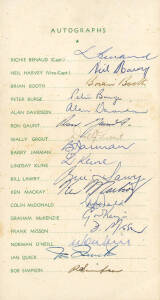 AUTOGRAPHS
RICHIE BENAUD (Capt.)
NEIL HARVEY (Vice-Capt.) Neil Harvey
BRIAN BOOTH Brian Booth
PETER BURGE Peter Burge
ALAN DAVIDSON Alan Davidson
RON GAUNT Ron Gaunt
WALLY GROUT
BARRY JARMAN BJarman
LINDSAY KLINE L Kline
BILL LAWRY Bill Lawry
KEN MACKAY Ken Mackay
COLIN McDONALD
GRAHAM McKENZIE
FRANK MISSON
NORMAN O'NEILL
IAN QUICK Ian Quick
BOB SIMPSON